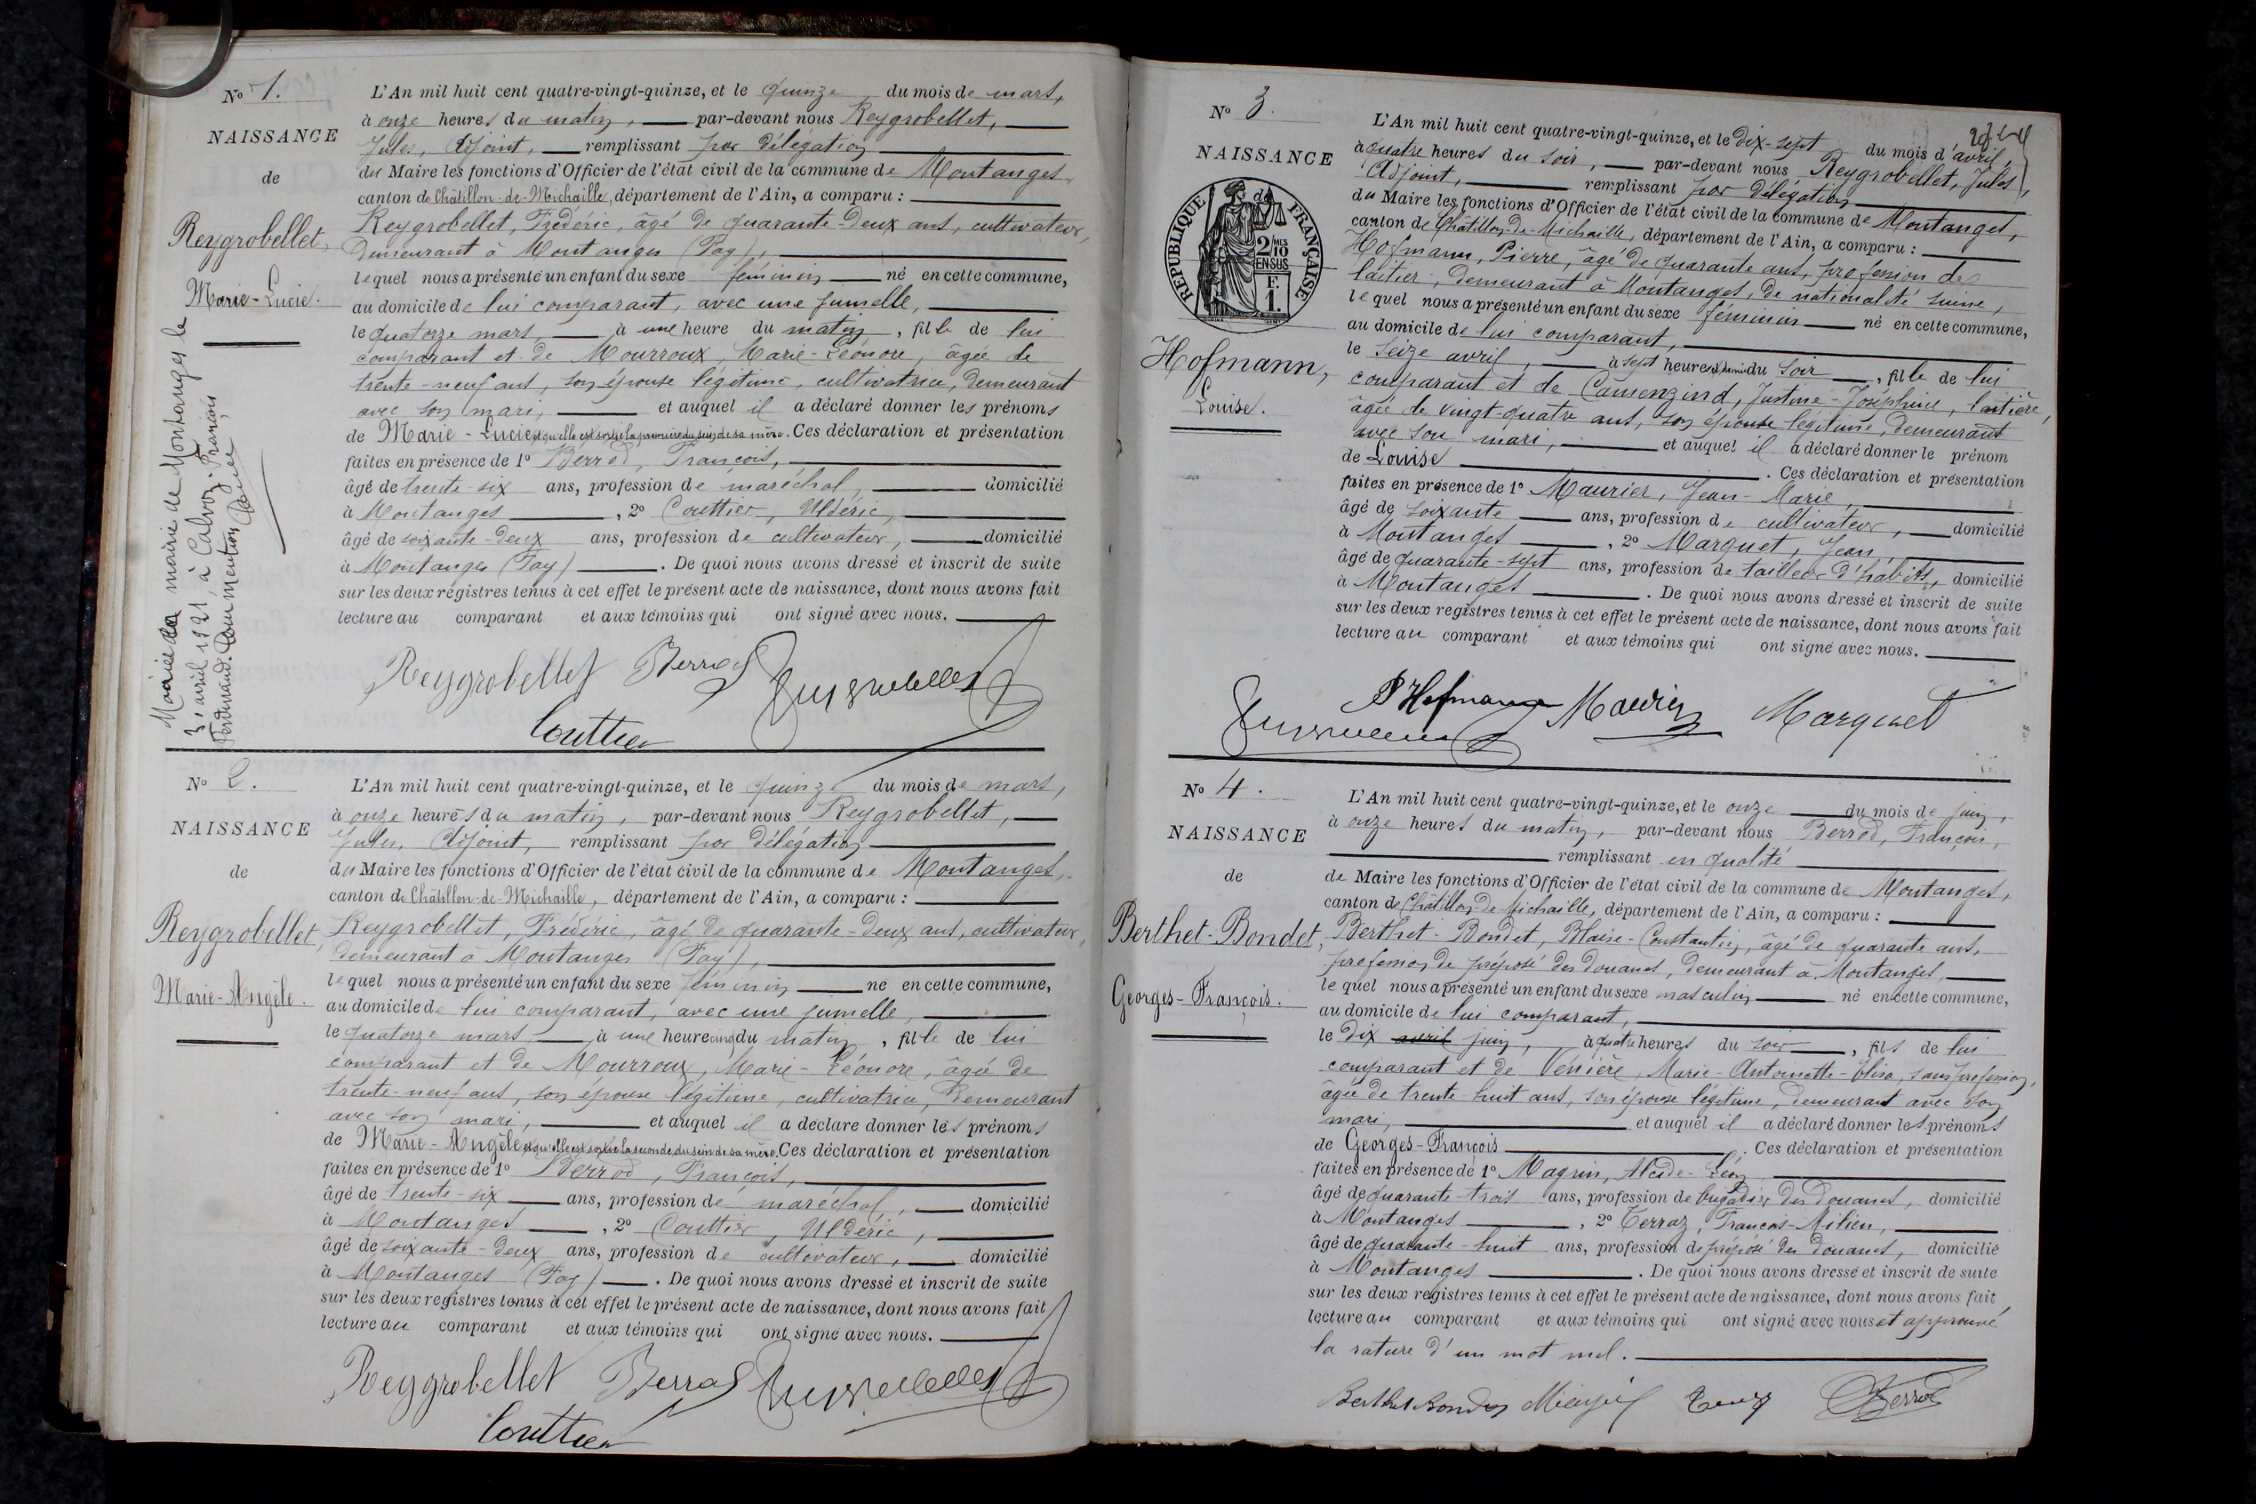 N° 1.
NAISSANCE
de
Reygrobellet,
Marie-Lucie.
Mariée à la mairie de Montanges le
avril 1921, à Calvoz, François
Ferdinand. Dont mention
L'An mil huit cent quatre-vingt-quinze, et le quinze du mois de mars,
à onze heures du matin, par-devant nous Reygrobellet,
Jules, Adjoint, remplissant par délégation
du Maire les fonctions d'Officier de l'état civil de la commune de Montanges,
canton de Châtillon-de-Michaille, département de l'Ain, a comparu :
Reygrobellet, Frédéric, âgé de quarante-deux ans, cultivateur,
demeurant à Montanges (Fay),
lequel nous a présenté un enfant du sexe féminin né en cette commune,
au domicile de lui comparant, avec une jumelle,
le quatorze mars à une heure du matin, fille de lui
comparant et de Mourroux, Marie-Léonore, âgée de
trente-neuf ans, son épouse légitime, cultivatrice, demeurant
avec son mari, et auquel il a déclaré donner les prénoms
de Marie-Lucie et qu'elle est sortie la première du sein de sa mère. Ces déclaration et présentation
faites en présence de 1° Berrod, François,
âgé de trente-six ans, profession de maréchal, domicilié
à Montanges, 2° Couttier, Uldéric,
âgé de soixante-deux ans, profession de cultivateur, domicilié
à Montanges (Fay). De quoi nous avons dressé et inscrit de suite
sur les deux registres tenus à cet effet le présent acte de naissance, dont nous avons fait
lecture au comparant et aux témoins qui ont signé avec nous.
Reygrobellet Berrod Reygrobellet
Couttier
N° 2.
NAISSANCE
de
Reygrobellet,
Marie-Angèle.
L'An mil huit cent quatre-vingt-quinze, et le quinze du mois de mars,
à onze heures du matin, par-devant nous Reygrobellet,
Jules, Adjoint, remplissant par délégation
du Maire les fonctions d'Officier de l'état civil de la commune de Montanges,
canton de Châtillon-de-Michaille, département de l'Ain, a comparu :
Reygrobellet, Frédéric, âgé de quarante-deux ans, cultivateur,
demeurant à Montanges (Fay),
lequel nous a présenté un enfant du sexe féminin né en cette commune,
au domicile de lui comparant, avec une jumelle,
le quatorze mars à une heure cinq du matin, fille de lui
comparant et de Mourroux, Marie-Léonore, âgée de
trente-neuf ans, son épouse légitime, cultivatrice, demeurant
avec son mari, et auquel il a déclaré donner les prénoms
de Marie-Angèle et qu'elle est sortie la seconde du sein de sa mère. Ces déclaration et présentation
faites en présence de 1° Berrod, François,
âgé de trente-six ans, profession de maréchal, domicilié
à Montanges, 2° Couttier, Uldéric,
âgé de soixante-deux ans, profession de cultivateur, domicilié
à Montanges (Fay). De quoi nous avons dressé et inscrit de suite
sur les deux registres tenus à cet effet le présent acte de naissance, dont nous avons fait
lecture au comparant et aux témoins qui ont signé avec nous.
Reygrobellet Berrod Reygrobellet
Couttier
N° 3.
NAISSANCE
de
RÉPUBLIQUE FRANÇAISE
2/10 MES
EN SUS
F.
1.
Hofmann,
Louise.
L'An mil huit cent quatre-vingt-quinze, et le dix-sept du mois d'avril,
à quatre heures du soir, par-devant nous Reygrobellet, Jules,
Adjoint, remplissant par délégation
du Maire les fonctions d'Officier de l'état civil de la commune de Montanges,
canton de Châtillon-de-Michaille, département de l'Ain, a comparu :
Hofmann, Pierre, âgé de quarante ans, profession de
laitier, demeurant à Montanges, de nationalité suisse,
lequel nous a présenté un enfant du sexe féminin né en cette commune,
au domicile de lui comparant,
le seize avril, à sept heures et demie du soir, fille de lui
comparant et de Camenzind, Justine-Joséphine, laitière,
âgée de vingt-quatre ans, son épouse légitime, demeurant
avec son mari, et auquel il a déclaré donner le prénom
de Louise. Ces déclaration et présentation
faites en présence de 1° Maurier, Jean-Marie,
âgé de soixante ans, profession de cultivateur, domicilié
à Montanges, 2° Marquet, Jean,
âgé de quarante-sept ans, profession de tailleur d'habits, domicilié
à Montanges. De quoi nous avons dressé et inscrit de suite
sur les deux registres tenus à cet effet le présent acte de naissance, dont nous avons fait
lecture au comparant et aux témoins qui ont signé avec nous.
P Hofmann Maurier Marquet
Reygrobellet
N° 4.
NAISSANCE
de
Berthet-Bondet,
Georges-François.
L'An mil huit cent quatre-vingt-quinze, et le onze du mois de juin,
à onze heures du matin, par-devant nous Berrod, François,
remplissant en qualité
de Maire les fonctions d'Officier de l'état civil de la commune de Montanges,
canton de Châtillon-de-Michaille, département de l'Ain, a comparu :
Berthet-Bondet, Blaise-Constantin, âgé de quarante ans,
profession de préposé des douanes, demeurant à Montanges,
lequel nous a présenté un enfant du sexe masculin né en cette commune,
au domicile de lui comparant,
le dix avril juin, à quatre heures du soir, fils de lui
comparant et de Vénière, Marie-Antoinette-Elisa, sans profession,
âgée de trente-huit ans, son épouse légitime, demeurant avec son
mari, et auquel il a déclaré donner les prénoms
de Georges-François. Ces déclaration et présentation
faites en présence de 1° Magnin, Alcide-Léon
âgé de quarante-trois ans, profession de brigadier des douanes, domicilié
à Montanges, 2° Terraz, François-Milien,
âgé de quarante-huit ans, profession de préposé des douanes, domicilié
à Montanges. De quoi nous avons dressé et inscrit de suite
sur les deux registres tenus à cet effet le présent acte de naissance, dont nous avons fait
lecture au comparant et aux témoins qui ont signé avec nous et approuvé
la rature d'un mot nul.
Berthet Bondet Terraz Berrod